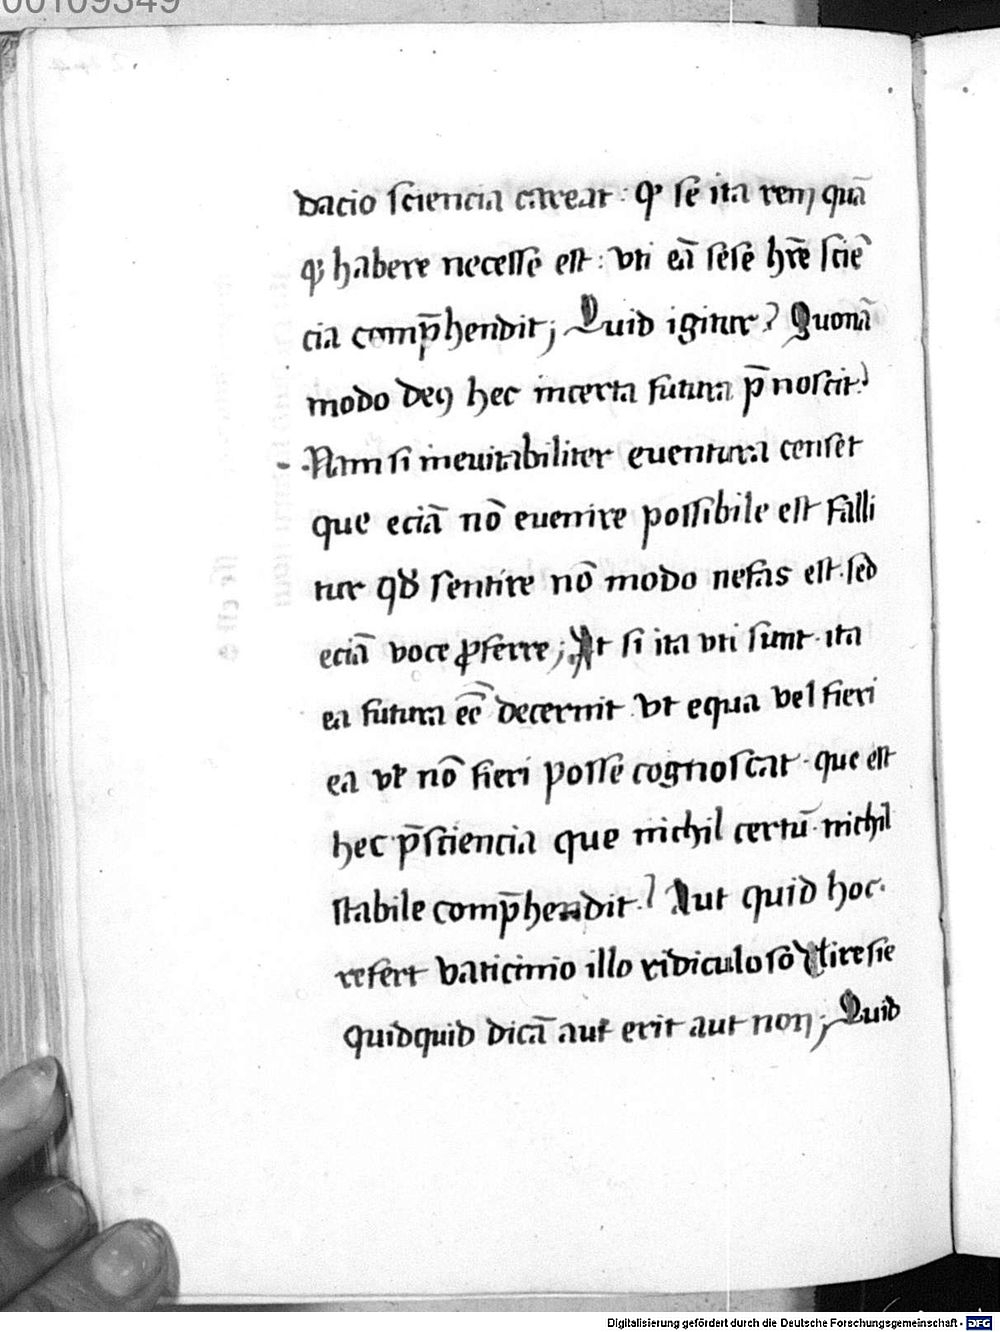 00109349
dacio sciencia careat : qꝛ se ita rem quā
qꝫ habere necesse est : vti eā sese hr̄e sciē
cia comp̄hendit ; Quid igitur ? Quonā
modo deꝯ hec incerta futura p̄noscit ?
Nam si ineuitabiliter euentura censet
que eciā nō euenire possibile est falli
tur qđ sentire nō modo nefas est . sed
eciā voce ꝓferre ; At si ita vti sunt . ita
ea futura ec̄e decernit . vt equa vel fieri
ea vƚ nō fieri posse cognoscat . que est
hec p̄sciencia que nichil certū . nichil
stabile comp̄hendit . ? Aut quid hoc .
refert vaticinio illo ridiculoso tiresie
quidquid dicā aut erit aut non ; Quid
Digitalisierung gefördert durch die Deutsche Forschungsgemeinschaft - DFG